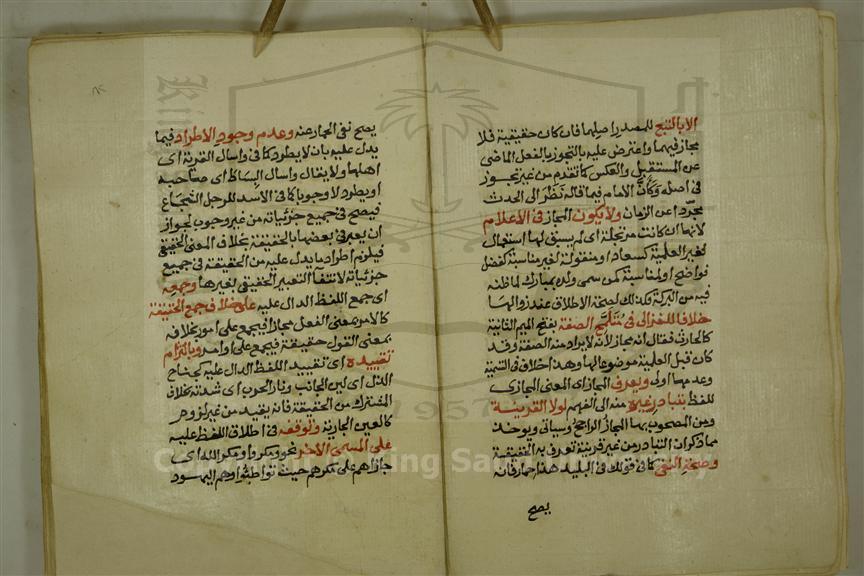 الا بالتبع للمصدر اصلهما فان كان حقيقية فلا
مجاز فيهما واعترض عليه بالتجوز بالفعل الماضى
عن المستقبل والعكس كما تقدم من غير تجوز
فى اصله وكأن الامام فيما قاله نظر الى الحدث
مجردا عن الزمان ولا يكون المجاز فى الاعلام
لانها ان كانت مرتجلة اى لم يسبق لها استعمال
لغير العلمية كسعاد او منقولة لغير مناسبة كفضل
فواضح او لمناسبة كمن سمى ولده بمبارك لما ظنه
فيه من البركة فكذلك لصحة الاطلاق عند زوالها
خلافا للغزالى فى متلمح الصفة بفتح الميم الثانية
كالحارث فقال انه مجاز لانه لا يراد منه الصفة وقد
كان قبل العلمية موضوعا لها وهذا خلاف فى التسمية
وعدمها اولى ويعرف المجاز اى المعنى المجازى
للفظ بتبادر غيره منه الى الفهم لولا القرينة
ومن المصحوب بها المجاز الراجح وسياتى ويوخذ
مما ذكر ان التبادر من غير قرينة تعرف به الحقيقة
وصحة النفى كما فى قولك فى البليد هذا حمار فانه
يصح
يصح نفى الحمار عنه وعدم وجوب الاطراد فيما
يدل عليه بان لا يطرد كما فى واسال القرية اى
اهلها ولا يقال واسال البساط اى صاحبه
او يطرد لا وجوبا كما فى الاسد للرجل الشجاع
فيصح فى جميع جزئياته من غير وجوب لجواز
ان يعبر فى بعضها بالحقيقة بخلاف المعنى الحقيقى
فيلزم اطراد ما يدل عليه من الحقيقة فى جميع
جزئياته لانتفاء التعبير الحقيقى بغيرها وجمعه
اى جمع اللفظ الدال عليه على خلاف جمع الحقيقة
كالامر بمعنى الفعل مجازا فيجمع على امور بخلافه
بمعنى القول حقيقة فيجمع على اوامر وبالتزام
تقييده اى تقييد اللفظ الدال عليه كجناح
الذل اى لين الجانب ونار الحرب اى شدته بخلاف
المشترك من الحقيقة فانه يقيد من غير لزوم
كالعين الجارية وتوقفه فى اطلاق اللفظ عليه
على المسمى الاخر نحو ومكروا ومكر الله اى
جازاهم على مكرهم حيث تواطئوا وهم اليهود
1957